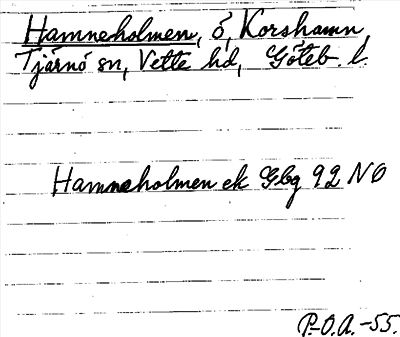 Hamneholmen, ö, Korshamn,
Tjärnö sn, Vette hd, Göteb. l.
Hamneholmen ek Gbg 92 NO
P.O.A.-55.